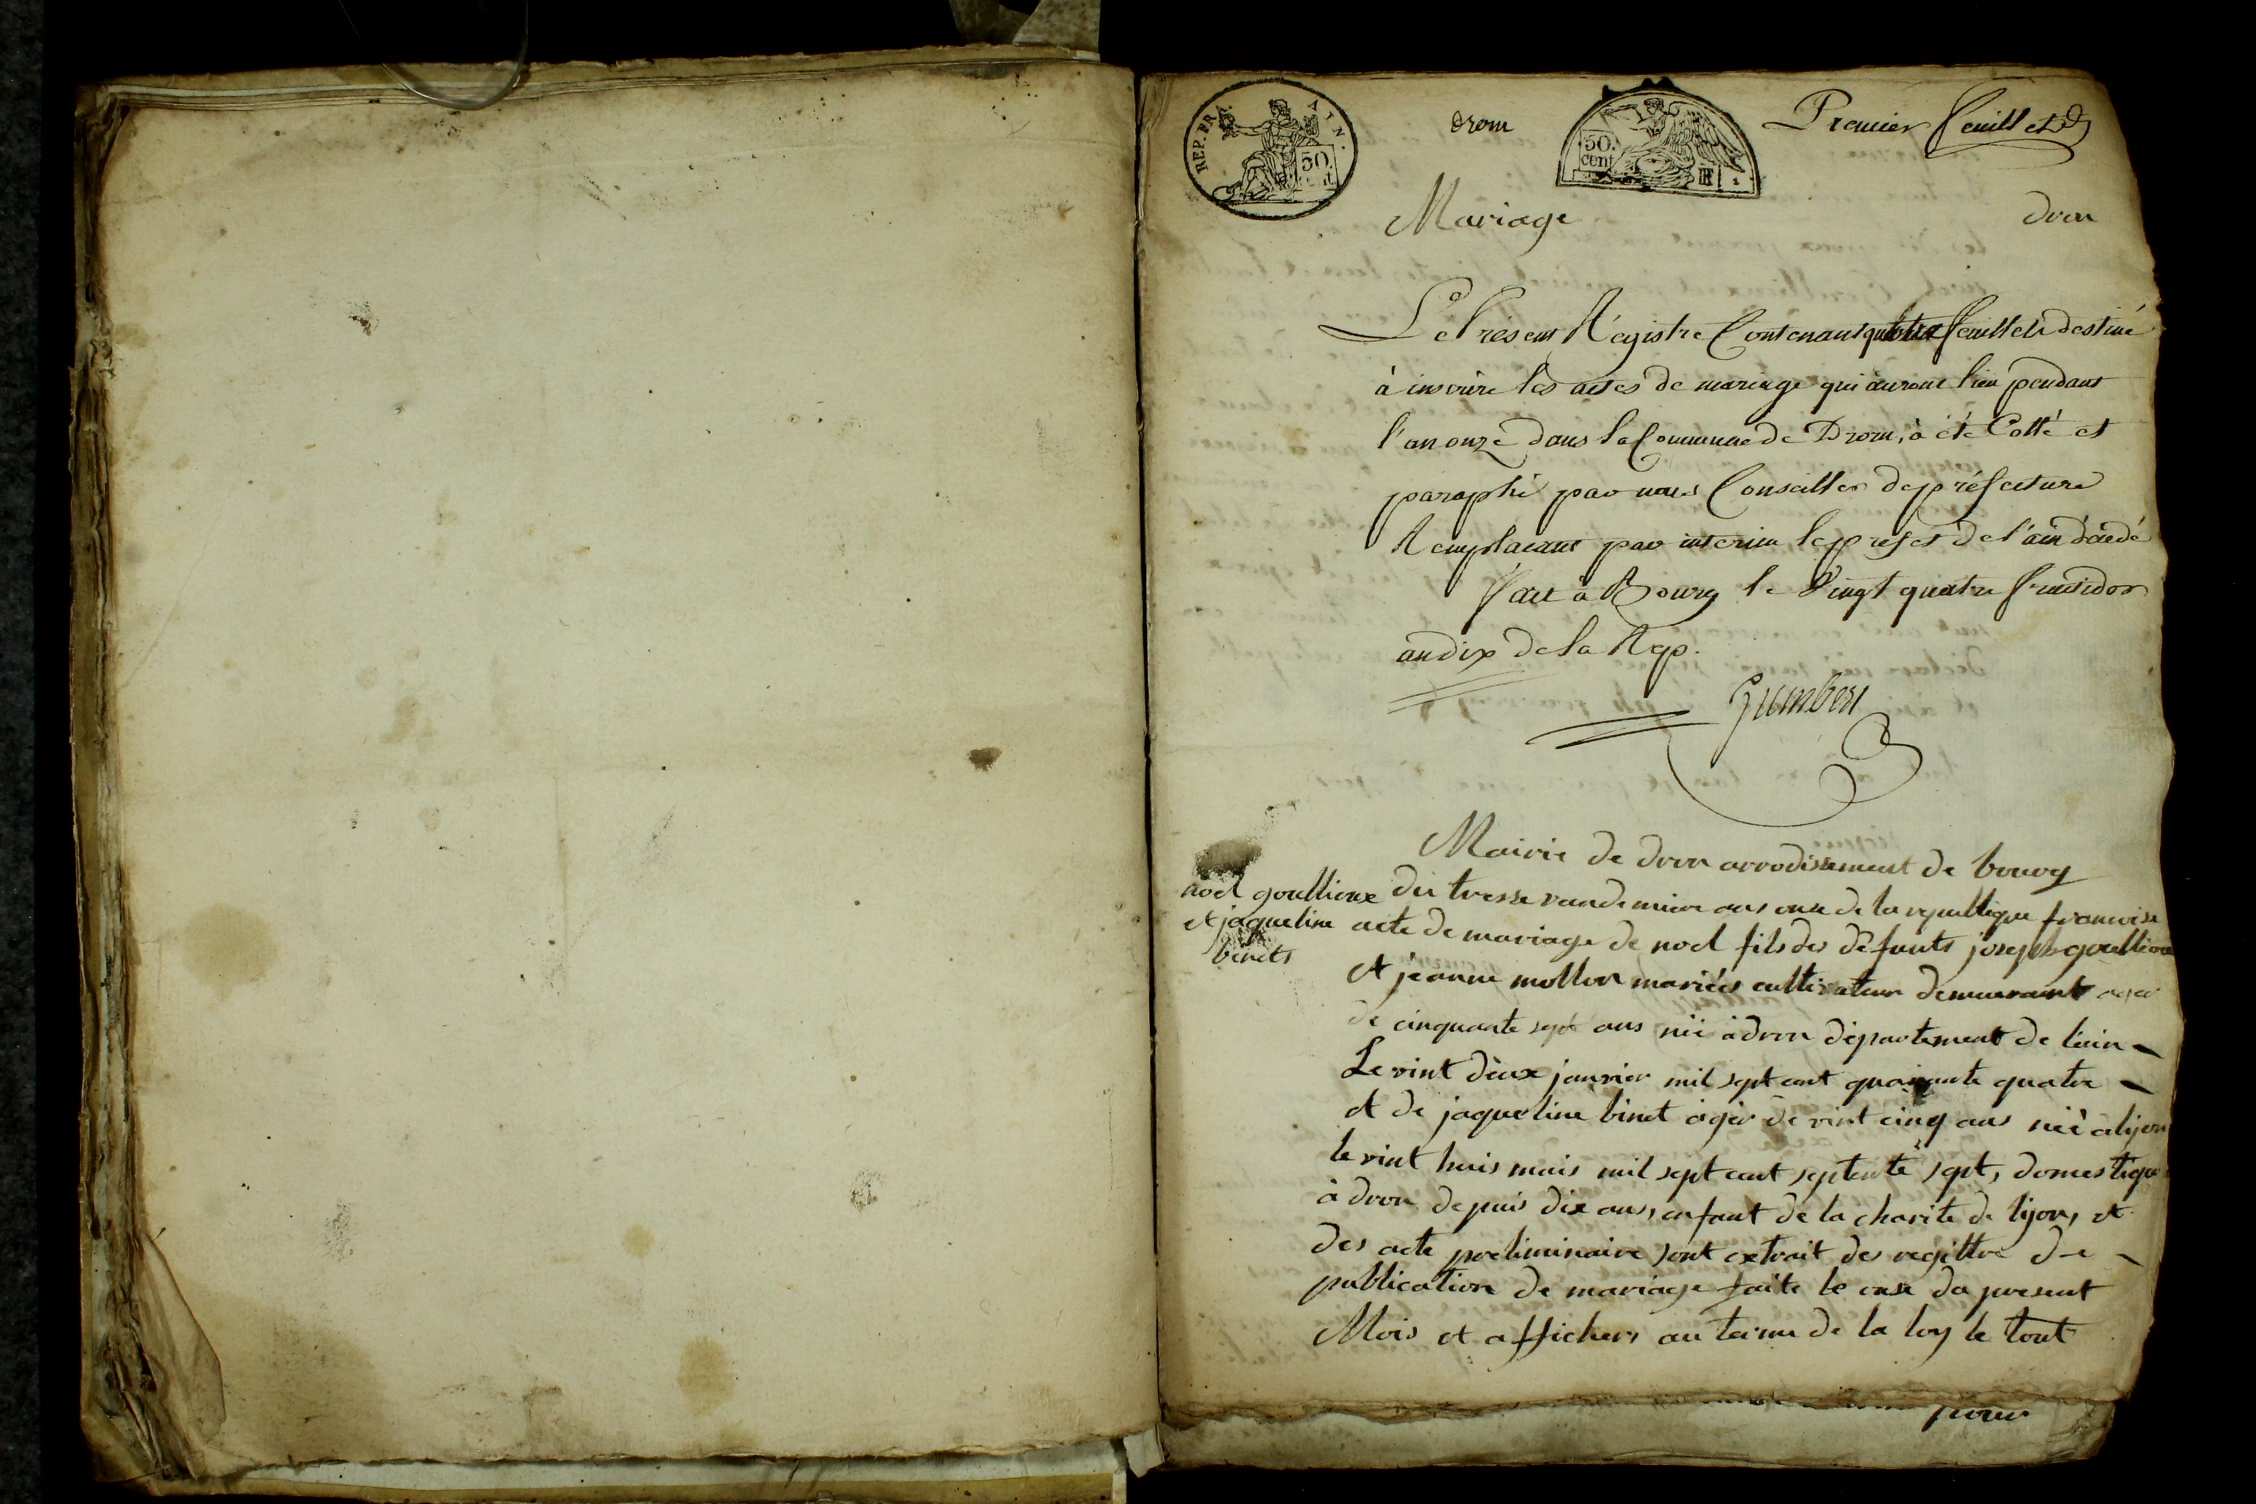 REP. FRA. AIN.
50. cent
drom
50. cent
RF
Premier feuillet
Mariage
dron
Le Présent Régistre Contenant quatre feuillets destiné
à inscrire les actes de mariage qui auront lieu pendant
l'an onze dans la Commune de Drom, à été Cotté et
paraphé par nous Conseiller de préfecture
Remplacant par interim le préfet de l'ain
fait à Bourg le Vingt quatre fructidor
an dix de la Rep.
Mairie de dron arrodissement de bourg
noel goullioux
et jaqueline
binets
du tresse vandemiere ans onse de la republique francoise
acte de mariage de noel fils des défunts joseph goullioux
et jeanne mollon mariés cultivateur demeurant agé
de cinquante sept ans néé à dron département de lain
Le vint déux janvier mil sept cent quarante quatre
et de jaqueline binet agéé de vint cinq ans néé a lijon
le vint huis mais mil sept cent septente sept, domestique
à dron depuis dix ans, enfant de la charite de lijon, et
des acte preliminaire sont extrait des regittre de
publication de mariage faite le onse du present
Mois et affichers au terme de la loy le tout
pour